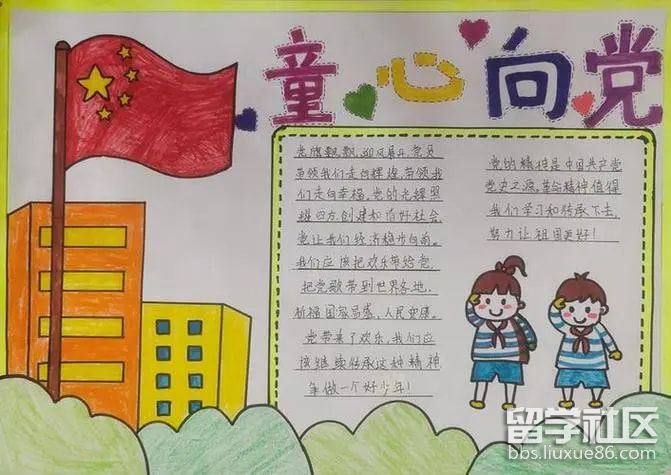 童心向党
党旗飘飘,迎风展升,党员
带领我们走向辉煌,带领我
们走向幸福,党的光辉照
耀四方,创建和谐好社会
党让我们经济稳步向前。
我们应该把欢乐带给党,
把党歌带到世界各地,
祈福国容昌盛,人民安康。
党带来了欢乐,我们应
该继续传承这种精神
争做一个好少年!
党的精神是中国共产党
党史之源,革命精神值得
我们学习和传承下去,
努力让祖国更好!
留学社区
bbs.liuxue86.com